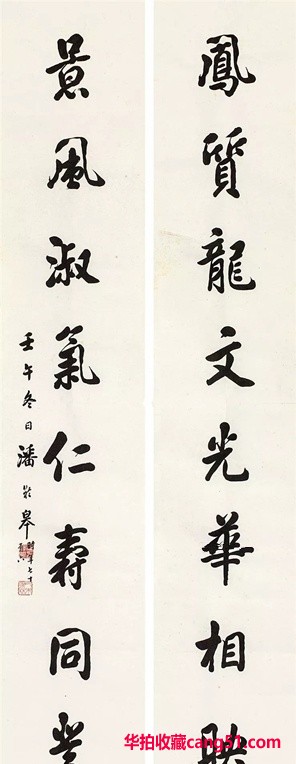 鳳質龍文光華相映
景風淑氣仁壽同登
壬午冬日潘齡皋時年七十
华拍收藏cang51.com